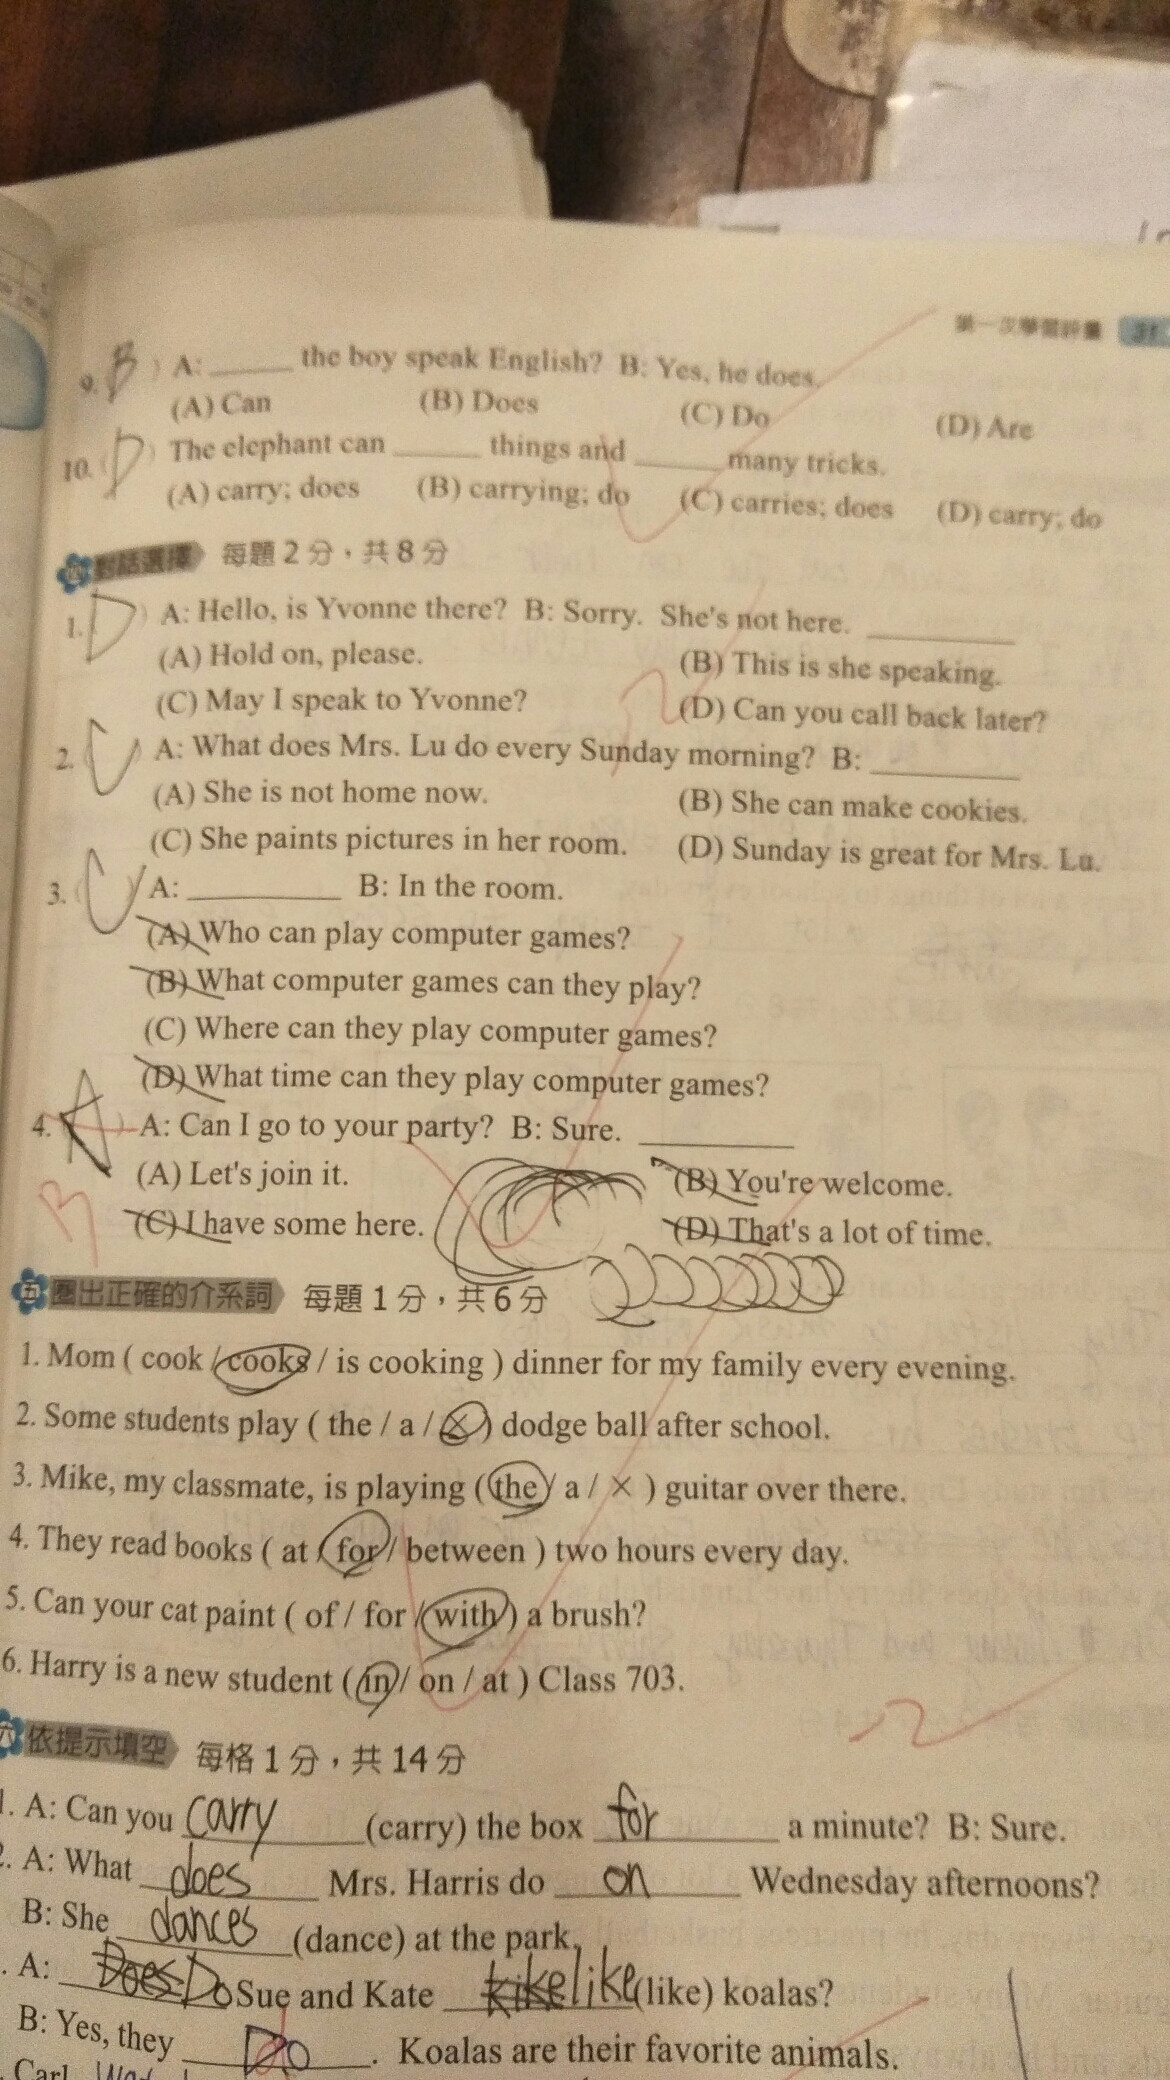 第一次學習評量 31
9. ( B ) A: ______ the boy speak English? B: Yes, he does.
(A) Can (B) Does (C) Do (D) Are
10. ( D ) The elephant can ______ things and ______ many tricks.
(A) carry; does (B) carrying; do (C) carries; does (D) carry; do
四 對話選擇 每題2分，共8分
1. ( D ) A: Hello, is Yvonne there? B: Sorry. She's not here. ______
(A) Hold on, please. (B) This is she speaking.
(C) May I speak to Yvonne? (D) Can you call back later?
2. ( C ) A: What does Mrs. Lu do every Sunday morning? B: ______
(A) She is not home now. (B) She can make cookies.
(C) She paints pictures in her room. (D) Sunday is great for Mrs. Lu.
3. ( C ) A: ______ B: In the room.
(A) Who can play computer games?
(B) What computer games can they play?
(C) Where can they play computer games?
(D) What time can they play computer games?
4. ( A ) A: Can I go to your party? B: Sure. ______
(A) Let's join it. (B) You're welcome.
B (C) I have some here. (D) That's a lot of time.
五 圈出正確的介系詞 每題1分，共6分
1. Mom ( cook / cooks / is cooking ) dinner for my family every evening.
2. Some students play ( the / a / × ) dodge ball after school.
3. Mike, my classmate, is playing ( the / a / × ) guitar over there.
4. They read books ( at / for / between ) two hours every day.
5. Can your cat paint ( of / for / with ) a brush?
6. Harry is a new student ( in / on / at ) Class 703.
-2
六 依提示填空 每格1分，共14分
1. A: Can you carry (carry) the box for a minute? B: Sure.
2. A: What does Mrs. Harris do on Wednesday afternoons?
B: She dances (dance) at the park.
. A: Does Do Sue and Kate like (like) koalas?
B: Yes, they Do. Koalas are their favorite animals.
Carl